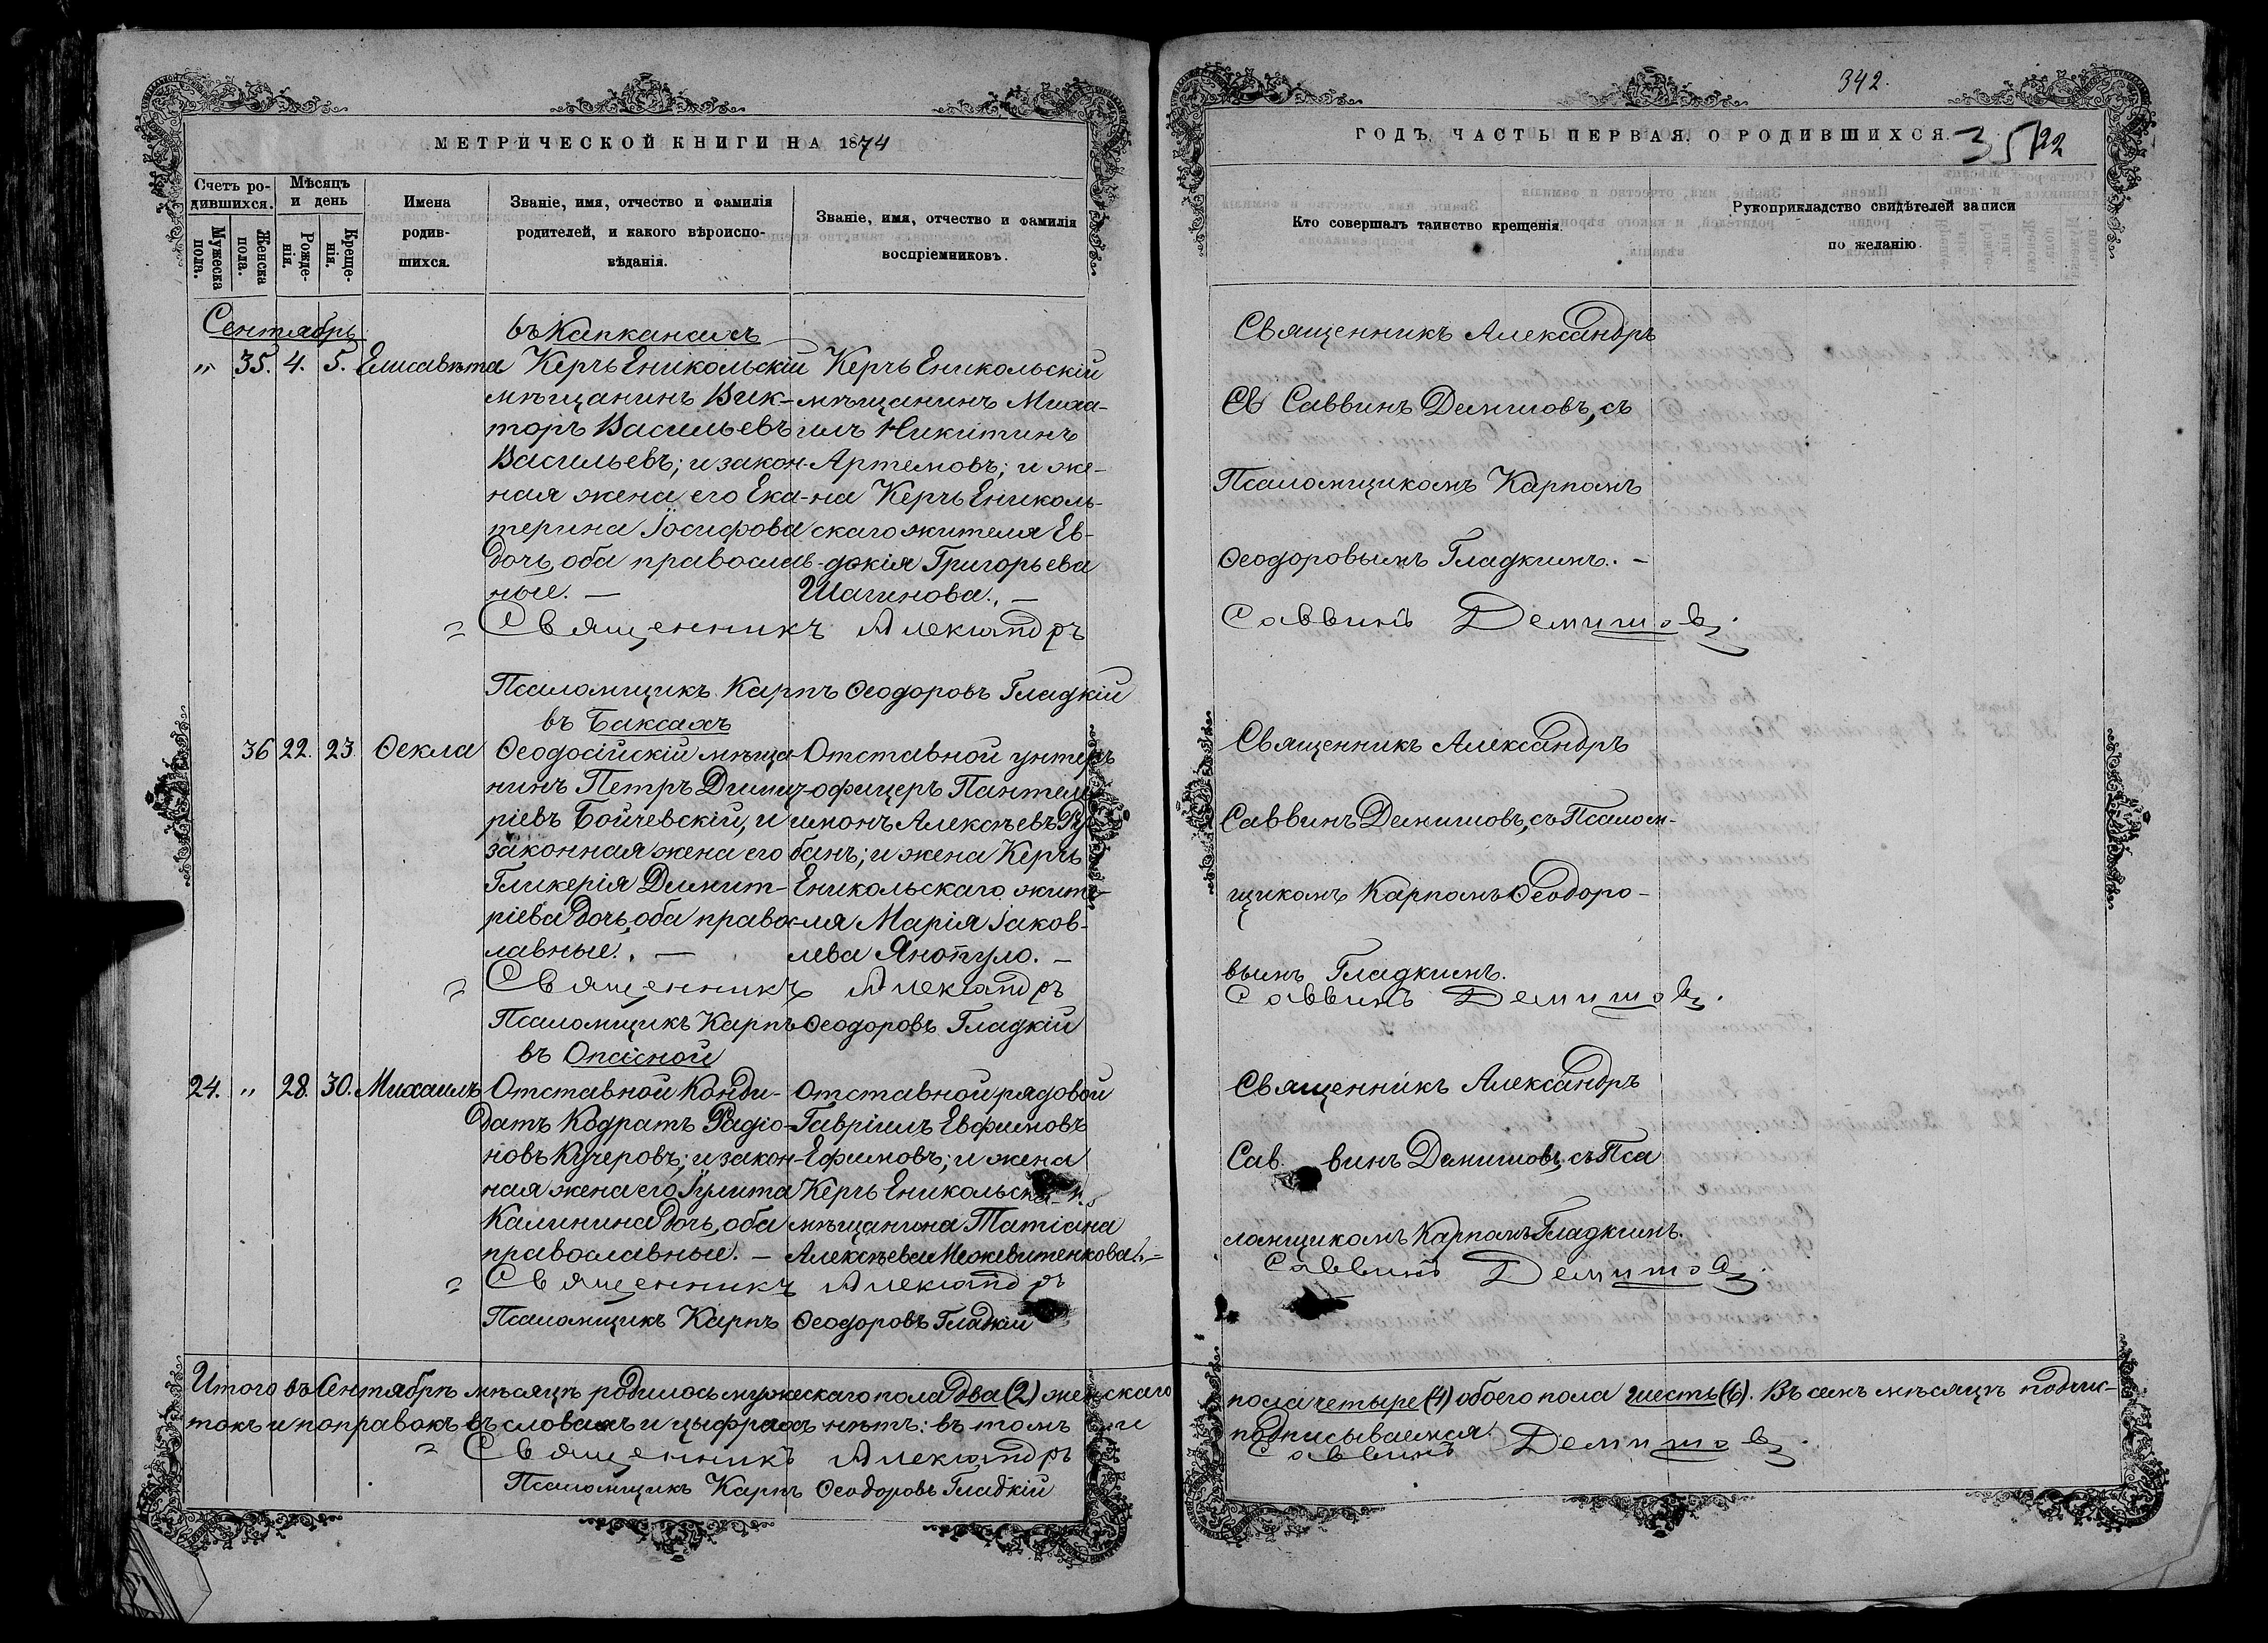 МЕТРИЧЕСКОЙ КНИГИ НА 1874
Счетъ ро-
дившихся.
Мужеска
пола.
Женска
пола.
Мѣсяцъ
и день
Рожде-
нія.
Креще-
нія.
Имена
родив-
шихся.
Званіе, имя, отчество и фамилія
родителей, и какого вѣроиспо-
вѣданія.
Званіе, имя, отчество и фамилія
воспріемниковъ.
Сентябрь
въ Капканахъ
„ 35. 4. 5. Елисавѣта
Керчь Еникольскій
мѣщанинъ Вик-
торъ Васильевъ
Васильевъ; и закон-
ная жена его Ека-
терина Іосифова
дочь, оба православ-
ные. —
Керчь Еникольскій
мѣщанинъ Миха-
илъ Никитинъ
Артемовъ; и же-
на Керчь Ениколь-
скаго жителя Ев-
докія Григорьева
Шагинова. —
Священникъ Александръ
Псаломщикъ Карпъ Ѳеодоровъ Гладкій
въ Баксахъ
36 22. 23. Ѳекла
Ѳеодосійскій мѣща-
нинъ Петръ Дими-
ріевъ Бойчевскій, и
законная жена его
Гликерія Димит-
ріева дочь, оба правос-
лавные. —
Отставной унтеръ
-офицеръ Пантелеи
имонъ Алексѣевъ Ру
банъ; и жена Керчь
Еникольскаго жите-
ля Марія Іаков-
лева Янопуло. —
Священникъ Александръ
Псаломщикъ Карпъ Ѳеодоровъ Гладкій
въ Опасной
24. „ 28. 30. Михаилъ
Отставной Конди-
датъ Кодратъ Радіо-
новъ Кучеровъ; и закон-
ная жена его Іулита
Калинина дочь, оба
православные. —
Отставной рядовой
Гавріилъ Евфимовъ
Ефимовъ; и жена
Керчь Еникольска
мѣщанина Татіана
Алексѣева Межевитенкова. —
Священникъ Александръ
Псаломщикъ Карпъ Ѳеодоровъ Гладкій
Итого въ Сентябрѣ мѣсяцѣ родилось мужескаго пола два (2) женскаго
токъ и поправокъ въ словахъ и цыфрахъ нѣтъ: въ томъ и
Священникъ Александръ
Псаломщикъ Карпъ Ѳеодоровъ Гладкій
342.
ГОДЪ, ЧАСТЬ ПЕРВАЯ, О РОДИВШИХСЯ.
22
Кто совершалъ таинство крещенія.
Рукоприкладство свидѣтелей записи
по желанію.
Священникъ Александръ
Саввинъ Демишовъ, съ
Псаломщикомъ Карпомъ
Ѳеодоровымъ Гладкимъ. —
Саввинъ Демишовъ
Священникъ Александръ
Саввинъ Демишовъ, съ Псалом-
щикомъ Карпомъ Ѳеодоро-
вымъ Гладкимъ.
Саввинъ Демишовъ.
Священникъ Александръ
Сав винъ Демишовъ, съ Пса
ломщикомъ Карпомъ Гладкимъ.
Саввинъ Демишовъ
пола четыре (4) обоего пола шесть (6). Въ семъ мѣсяцѣ подчис-
подписываемся.
Саввинъ Демишовъ.